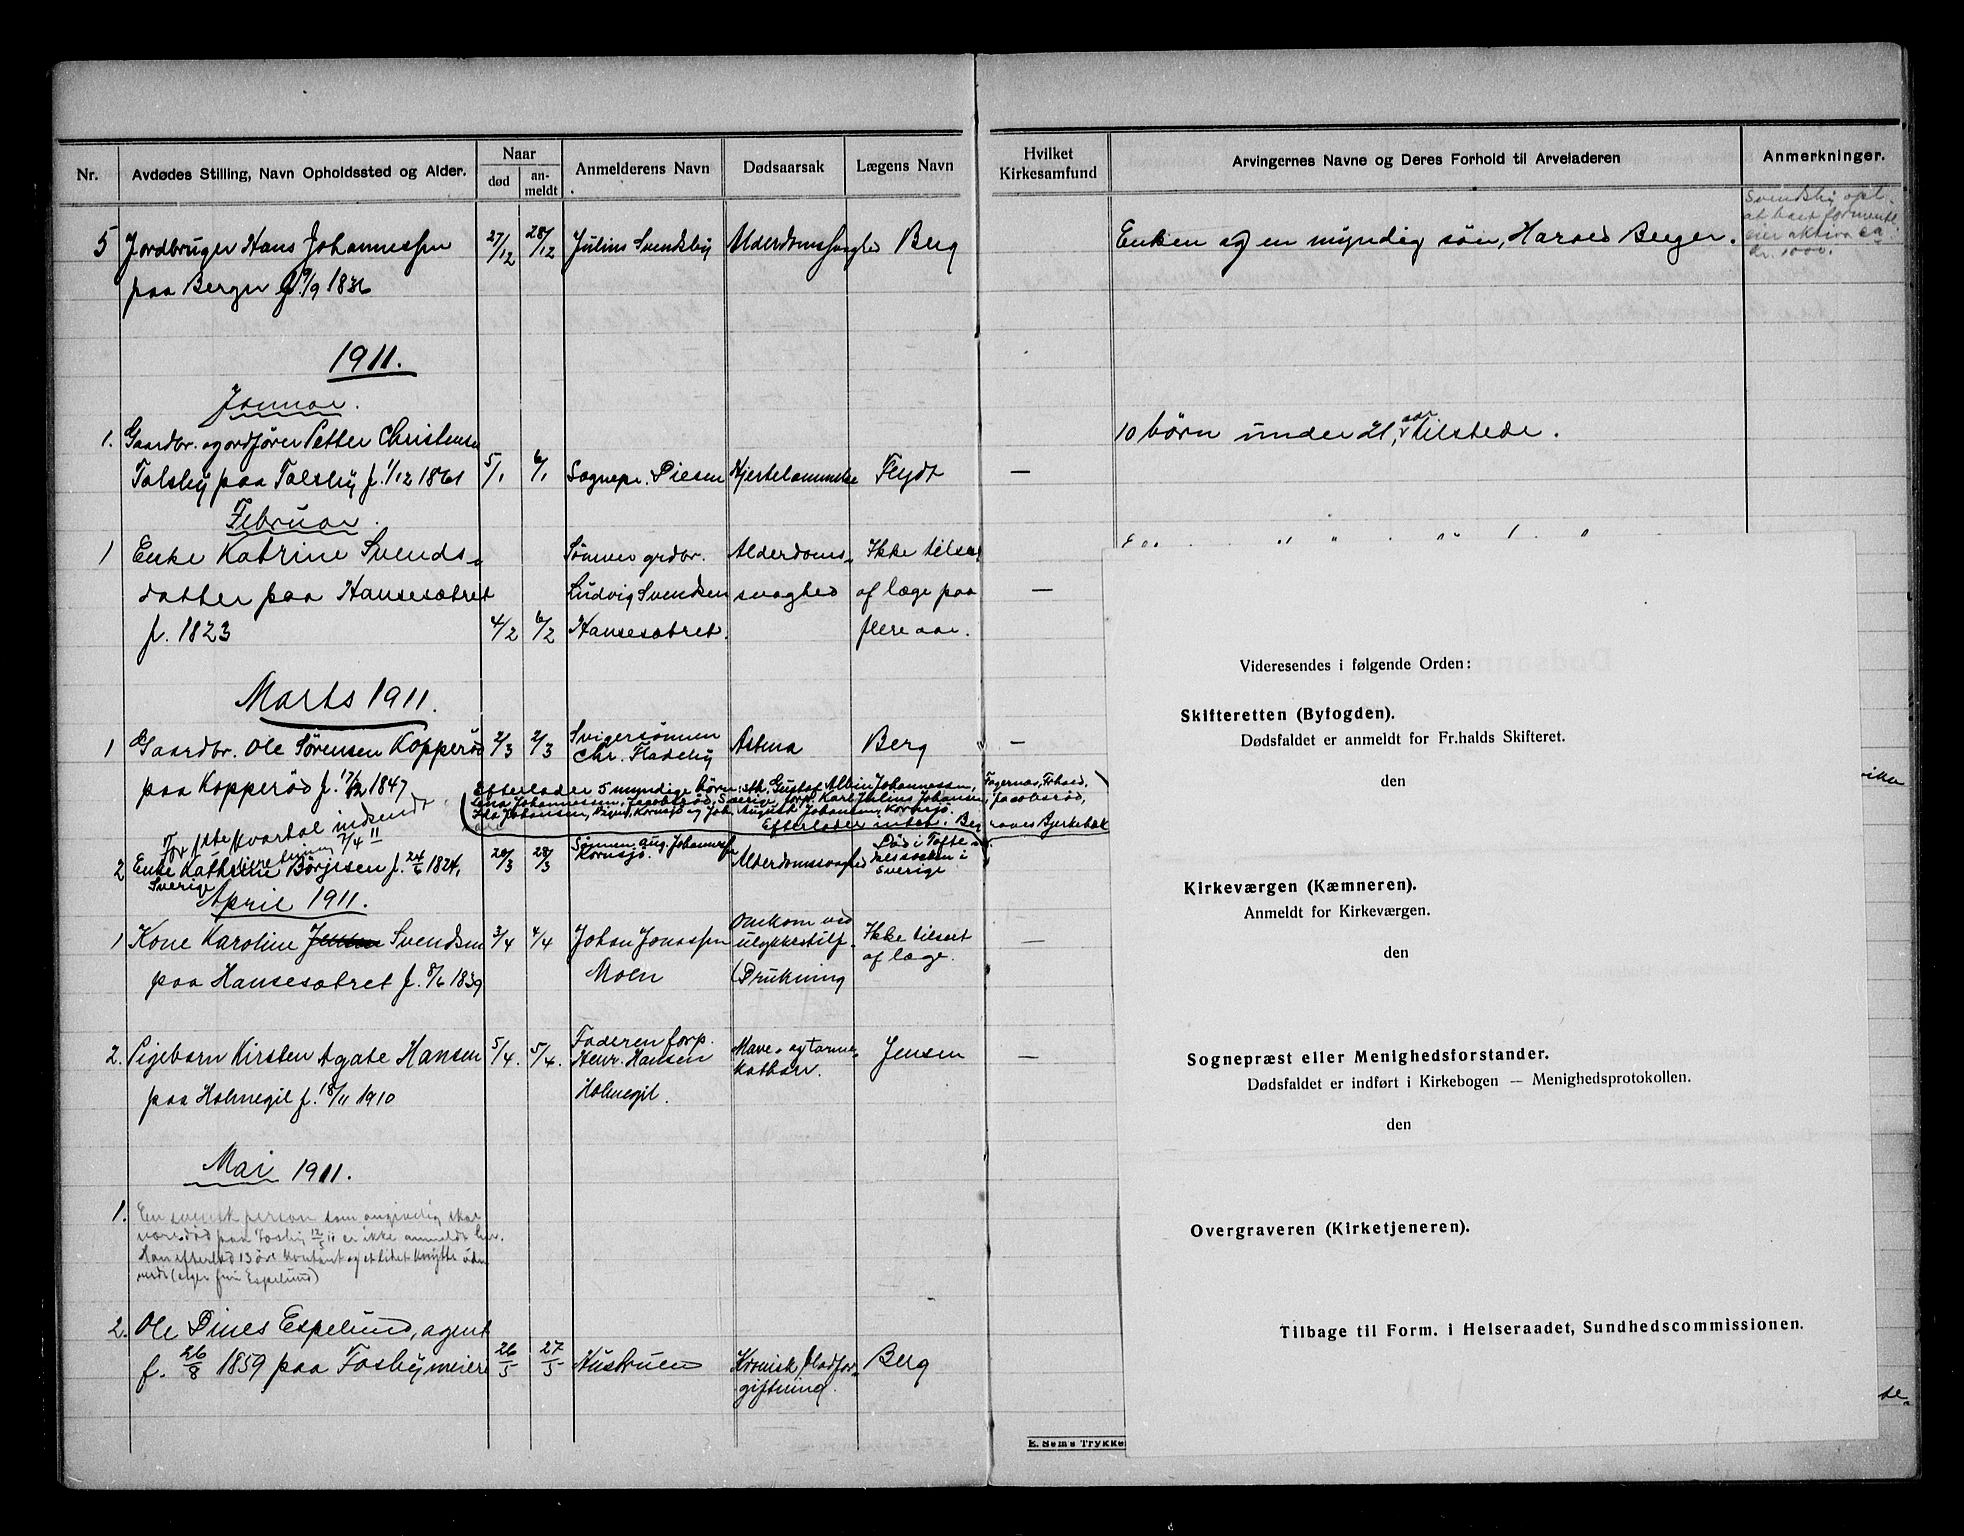 Nr.
Avdødes Stilling, Navn Opholdssted og Alder.
Naar
død
an-
meldt
Anmelderens Navn
Dødsaarsak
Lægens Navn
Hvilket
Kirkesamfund
Arvingernes Navne og Deres Forhold til Arveladeren
Anmerkninger.
5 Jordbruger Hans Johannessen 27/12 28/12 Julius Svendsby Alderdomssvaghed Berg Enken og en myndig søn, Harald Berger.
paa Berger 9/9 1836
Svendsby opl.
at
aktiva ca
kr. 1000.
1911.
Januar.
1. Gaardbr. og ordfører Petter Christensen
10 børn under 21 aar tilstede.
Talsby paa Talsby f. 1/12 1861 5/1 6/1 Sognepr. Diesen Hjertelammelse Flydt —
Februar.
1 Enke Katrine Svends- Sønnen grdbr. Alderdoms- Ikke tilset
datter paa Hansesætret Ludvig Svendsen svaghed af læge paa —
f. 1823 4/2 6/2 Hansesætret. flere aar.
Marts 1911.
1 Gaardbr. Ole Sørensen Kopperød 2/3 2/3 Svigersønnen Astma Berg —
Chr. Fladeby
paa Kopperød f. 17/12 1847
Efterlader 5 myndige børn: Gustaf Albin Johannessen, Fagernæs, Frhald.
Lina Johannessen, Jacobsrød, Sverige, forp. Karl Julius Johansen, Jacobsrød,
Ida Johansen, Kornsjø og Joh. August Johansen, Kornsjø.
Efterlader intet. Beg raves Bjerkebæk
For 1ste kvartal indsendt
7/4 11
2 Enke Kathrine Börjesen f. 24/6 1824, 20/3 28/3 Sønnen Aug. Johannesen Alderdomssvaghed Død i Töfte-
Kornsjø. dalssocken i
Sverige Sverige
April 1911.
1 Kone Karoline Svendsen 3/4 4/4 Johan Jonassen Omkom ved Ikke tilset —
ulykkestilf. af læge.
paa Hansesætret f. 8/6 1839 Moen (Drukning
2. Pigebarn Kirsten Agate Hansen 5/4. 5/4. Faderen forp. Mave- og tarm- Jensen —
Henr. Hansen katharr.
paa Holmegil f. 18/11 1910 Holmegil.
Mai 1911.
1. En svensk person som angivelig skal
være død paa Fosby 12/5 11 er ikke anmeldt her.
Han efterlod 13 öre kontant og et lidet knytte uden
værdi (siger fru Espelund)
2. Ole Dines Espelund, agent
f. 26/8 1859 paa Fosby meieri 26/5 27/5 Hustruen Kronisk blodfor- Berg
giftning.
Videresendes i følgende Orden:
Skifteretten (Byfogden).
Dødsfaldet er anmeldt for Fr.halds Skifteret.
den
Kirkeværgen (Kæmneren).
Anmeldt for Kirkeværgen.
den
Sognepræst eller Menighedsforstander.
Dødsfaldet er indført i Kirkebogen — Menighedsprotokollen.
den
Overgraveren (Kirketjeneren).
Tilbage til Form. i Helseraadet, Sundhedscommissionen.
E. Sems Trykke